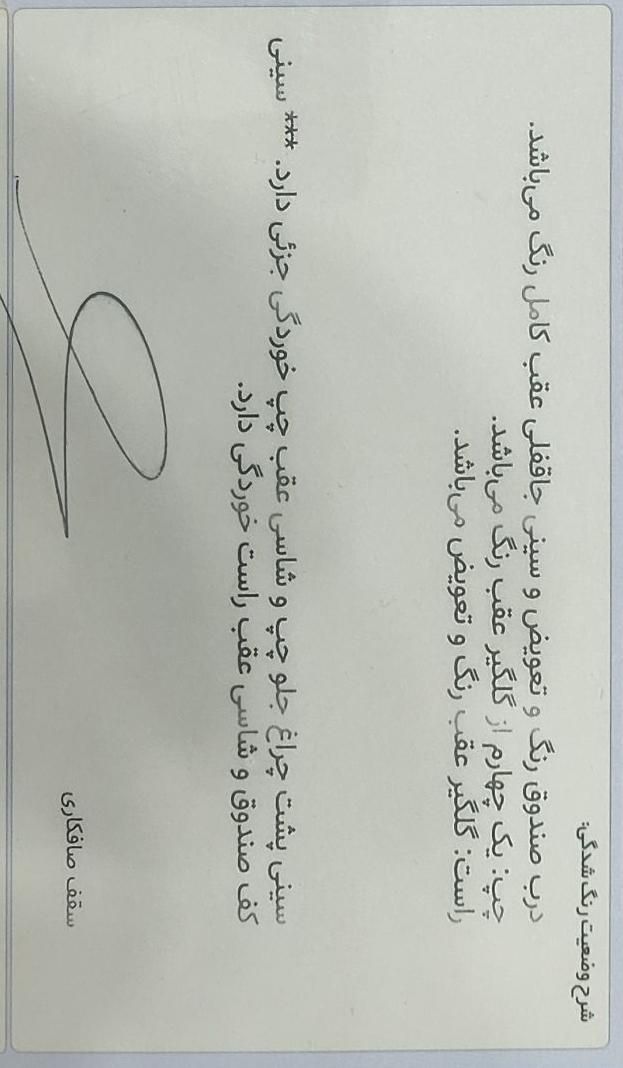 شرح وضعیت رنگ شدگی:
درب صندوق رنگ و تعویض و سینی جاقفلی عقب کامل رنگ می‌باشد.
چپ: یک چهارم از گلگیر عقب رنگ می‌باشد.
راست: گلگیر عقب رنگ و تعویض می‌باشد.
سینی پشت چراغ جلو چپ و شاسی عقب چپ خوردگی جزئی دارد. *** سینی
کف صندوق و شاسی عقب راست خوردگی دارد.
سقف صافکاری